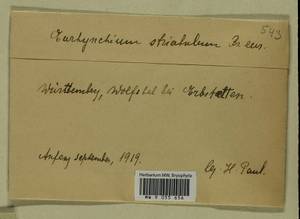 543
Eurhynchium striatulum Br. eur.
Württemberg, Wolfstal bei Erbstetten.
Anfang September, 1919.
leg. H. Paul.
Herbarium MW, Bryophyta
MW 9 055 656